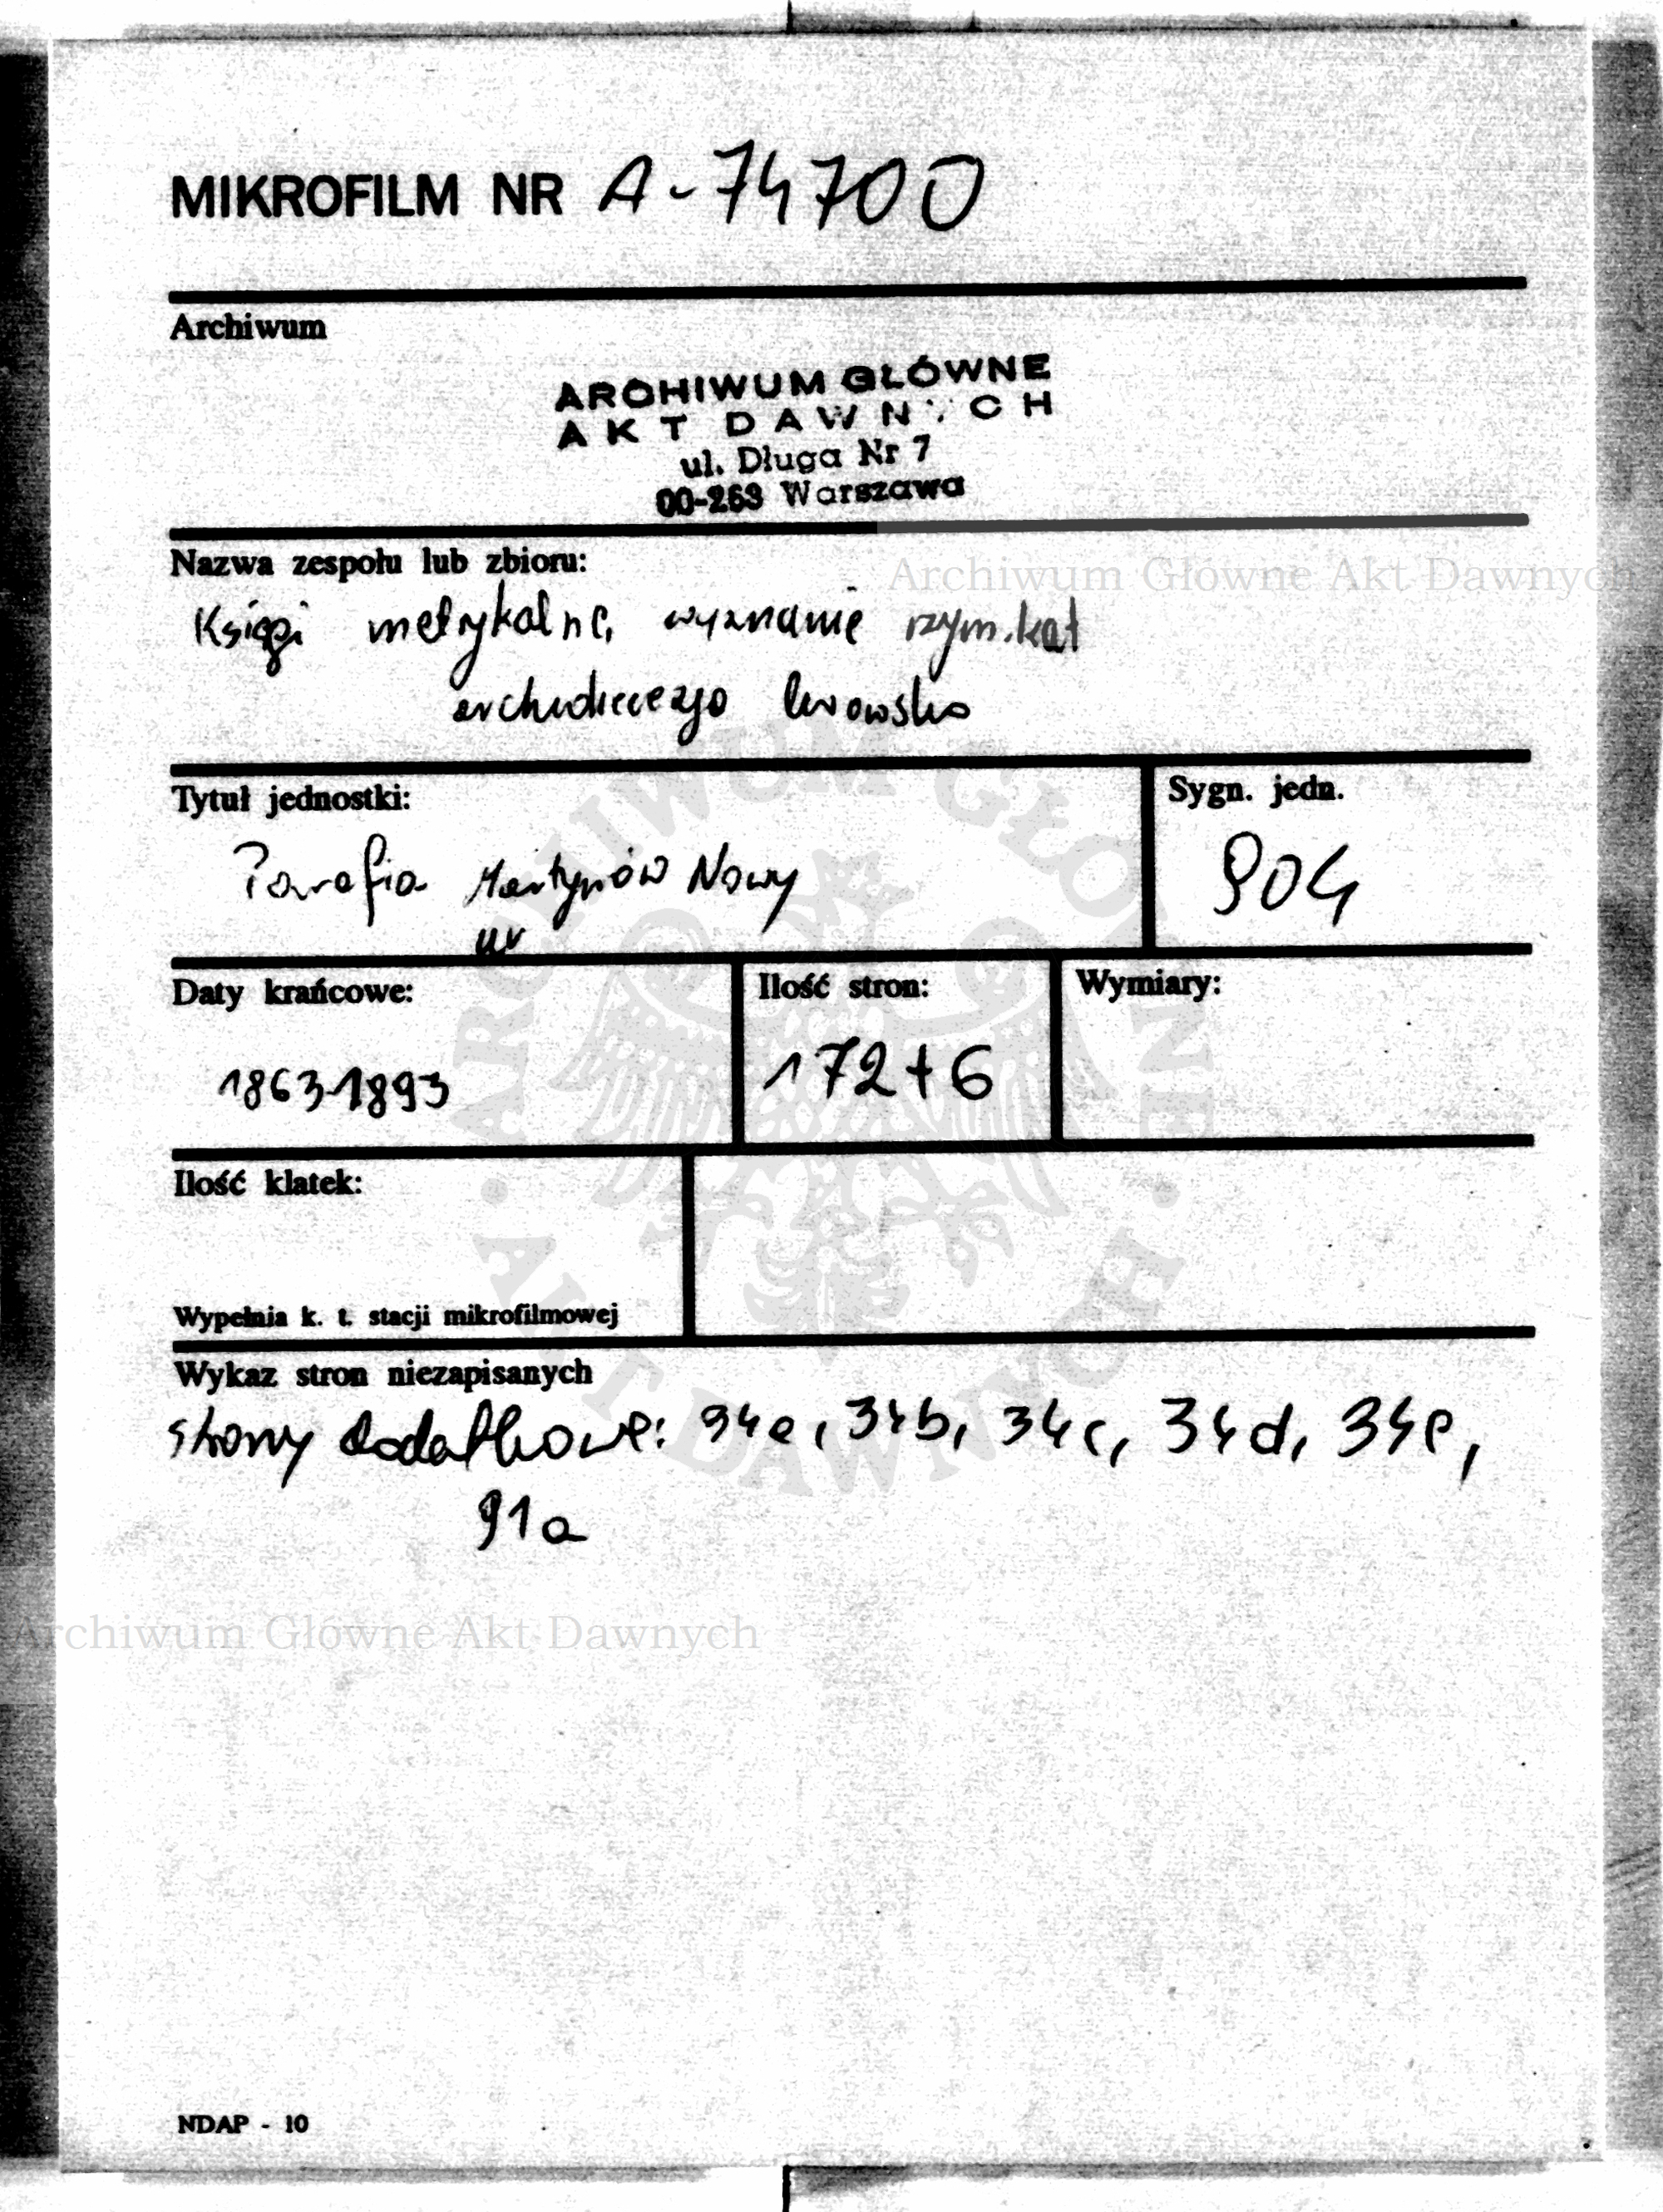 MIKROFILM NR A-74700
Archiwum
ARCHIWUM GŁÓWNE
AKT DAWNYCH
ul. Długa Nr 7
00-263 Warszawa
Nazwa zespołu lub zbioru:
Archiwum Główne Akt Dawnych
Księgi metrykalne, wyznanie rzym.kat
archidiecezja lwowska
Tytuł jednostki:
Sygn. jedn.
Parafia Martynów Nowy
904
ur
Daty krańcowe:
Ilość stron:
Wymiary:
1863-1893
172+6
Ilość klatek:
Wypełnia k. t. stacji mikrofilmowej
Wykaz stron niezapisanych
strony dodatkowe: 34a, 34b, 34c, 34d, 34e,
91a
Archiwum Główne Akt Dawnych
NDAP - 10
ARCHIWUM GŁÓWNE · AKT DAWNYCH ·